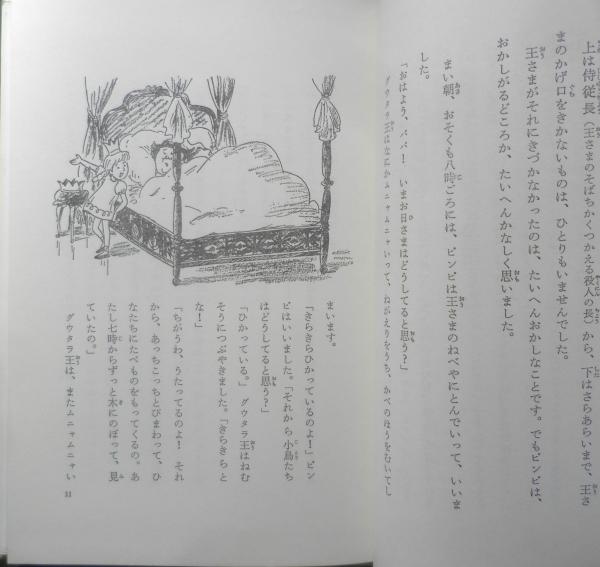 上は侍従長（王さまのそばちかくつかえる役人の長）から、下はさらあらいまで、王さ
まのかげ口をきかないものは、ひとりもいませんでした。
王さまがそれにきづかなかったのは、たいへんおかしなことです。でもピンピは、
おかしがるどころか、たいへんかなしく思いました。
まい朝、おそくも八時ごろには、ピンピは王さまのねべやにとんでいって、いいま
した。
「おはよう、パパ！　いまお日さまはどうしてると思う？」
グウタラ王はなにかムニャムニャいって、ねがえりをうち、かべのほうをむいてし
まいます。
「きらきらひかっているのよ！」ピン
ピはいいました。「それから小鳥たち
はどうしてると思う？」
「ひかっている。」グウタラ王はねむ
そうにつぶやきました。「きらきらと
な！」
「ちがうわ、うたってるのよ！　それ
から、あっちこっちとびまわって、ひ
なたちにたべものをもってくるの。あ
たし七時からずっと木にのぼって、見
ていたの。」
グウタラ王は、またムニャムニャい
11